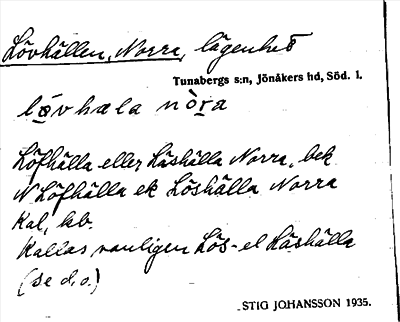 Lövhällen, Norra, lägenhet
Tunabergs s:n, Jönåkers hd, Söd. l.
lövhæla nòra
Löfhälla eller Läshälla Norra, bek
N Löfhälla ek Löshälla Norra
Kal, kb.
Kallas vanligen Lös- el Läshälla
(se d.o.)
STIG JOHANSSON 1935.